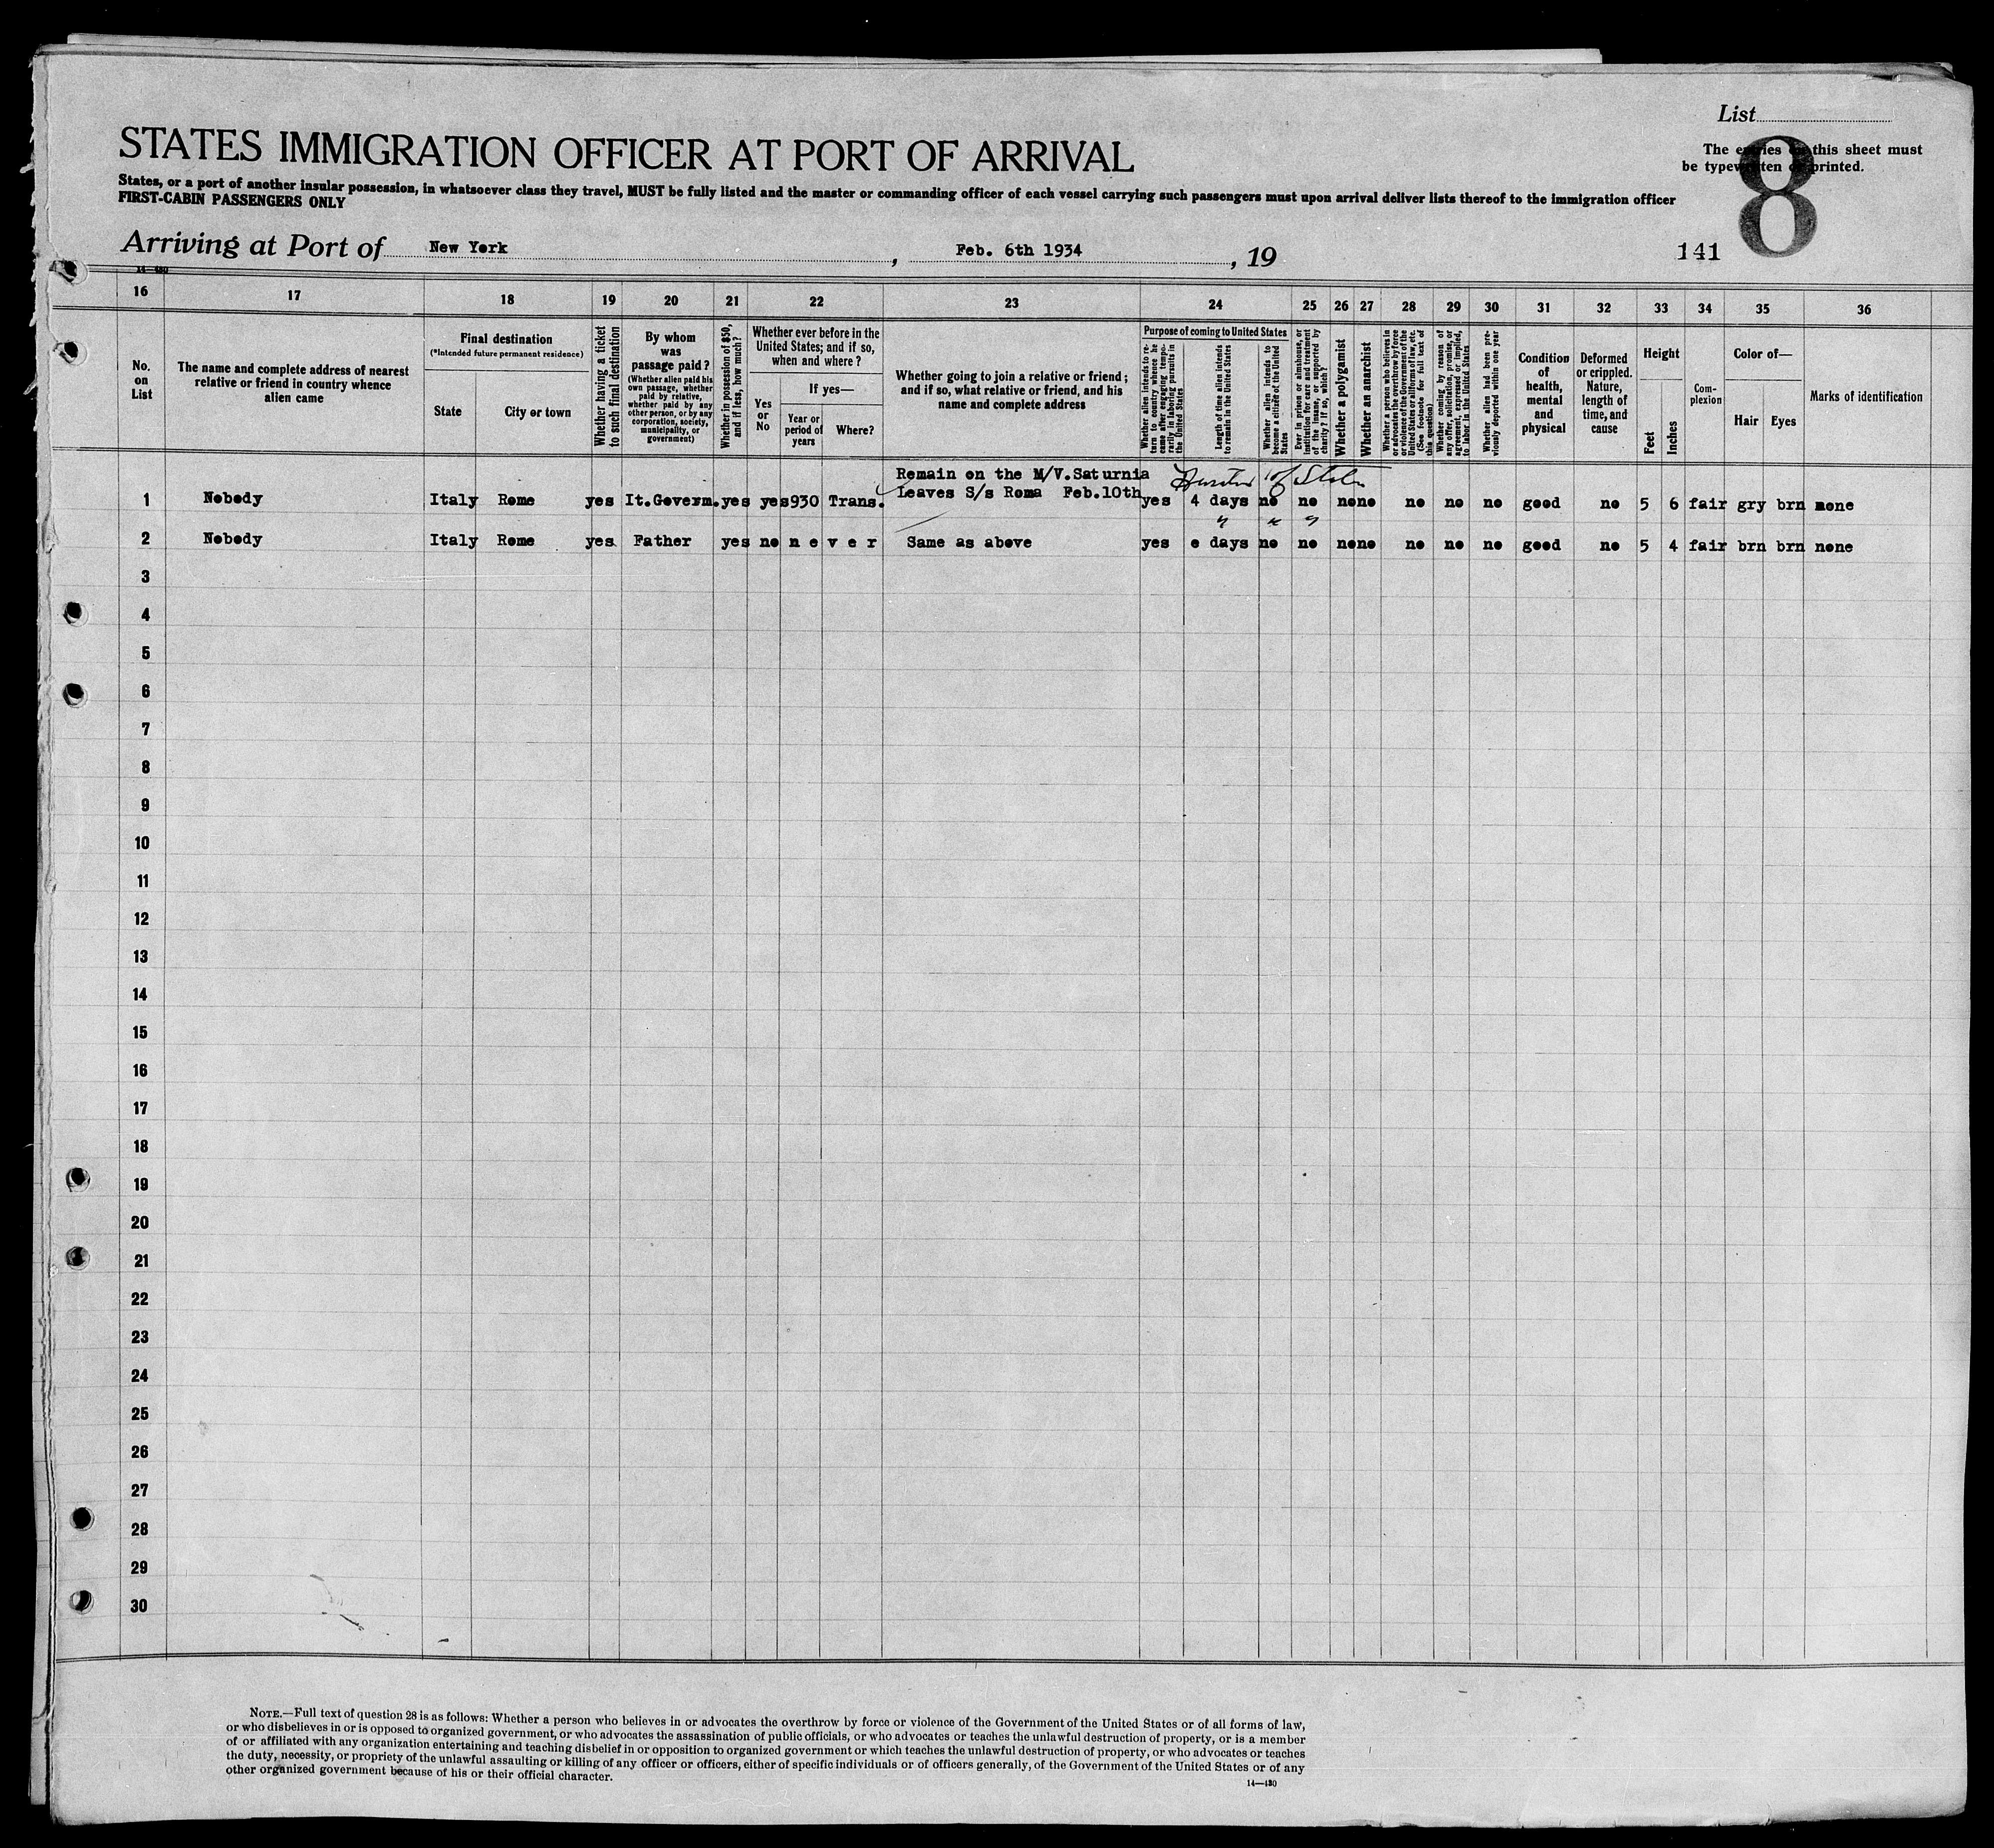 List
STATES IMMIGRATION OFFICER AT PORT OF ARRIVAL
The entries on this sheet must
be typewritten or printed.
8
States, or a port of another insular possession, in whatsoever class they travel, MUST be fully listed and the master or commanding officer of each vessel carrying such passengers must upon arrival deliver lists thereof to the immigration officer
FIRST-CABIN PASSENGERS ONLY
Arriving at Port of New York, Feb. 6th 1934, 19
141
14—480
16 17 18 19 20 21 22 23 24 25 26 27 28 29 30 31 32 33 34 35 36
No.
on
List
The name and complete address of nearest
relative or friend in country whence
alien came
Final destination
(*Intended future permanent residence)
State
City or town
Whether having a ticket
to such final destination
By whom
was
passage paid?
(Whether alien paid his
own passage, whether
paid by relative,
whether paid by any
other person, or by any
corporation, society,
municipality, or
government)
Whether in possession of $50,
and if less, how much?
Whether ever before in the
United States; and if so,
when and where?
If yes—
Yes
or
No
Year or
period of
years
Where?
Whether going to join a relative or friend;
and if so, what relative or friend, and his
name and complete address
Purpose of coming to United States
Whether alien intends to re-
turn to country whence he
came after engaging tempo-
rarily in laboring pursuits in
the United States
Length of time alien intends
to remain in the United States
Whether alien intends to
become a citizen of the United
States
Ever in prison or almshouse, or
institution for care and treatment
of the insane, or supported by
charity? If so, which?
Whether a polygamist
Whether an anarchist
Whether a person who believes in
or advocates the overthrow by force
or violence of the Government of the
United States or all forms of law, etc.
(See footnote for full text of
this question)
Whether coming by reason of
any offer, solicitation, promise, or
agreement, expressed or implied,
to labor in the United States
Whether alien had been pre-
viously deported within one year
Condition
of
health,
mental
and
physical
Deformed
or crippled.
Nature,
length of
time, and
cause
Height
Feet
Inches
Com-
plexion
Color of—
Hair Eyes
Marks of identification
Remain on the M/V.Saturnia
Leaves S/s Roma Feb.10th
of State
1 Nobody Italy Rome yes It.Governm. yes yes 930 Trans. yes 4 days no no no no no no no good no 5 6 fair gry brn none
" " "
2 Nobody Italy Rome yes Father yes no n e v e r Same as above yes e days no no no no no no no good no 5 4 fair brn brn none
3
4
5
6
7
8
9
10
11
12
13
14
15
16
17
18
19
20
21
22
23
24
25
26
27
28
29
30
NOTE.—Full text of question 28 is as follows: Whether a person who believes in or advocates the overthrow by force or violence of the Government of the United States or of all forms of law,
or who disbelieves in or is opposed to organized government, or who advocates the assassination of public officials, or who advocates or teaches the unlawful destruction of property, or is a member
of or affiliated with any organization entertaining and teaching disbelief in or opposition to organized government or which teaches the unlawful destruction of property, or who advocates or teaches
the duty, necessity, or propriety of the unlawful assaulting or killing of any officer or officers, either of specific individuals or of officers generally, of the Government of the United States or of any
other organized government because of his or their official character.
14—480